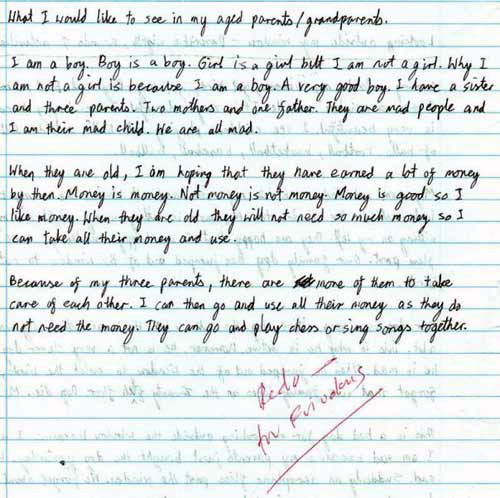 What I would like to see in my aged parents/grandparents.
I am a boy. Boy is a boy. Girl is a girl but I am not a girl. Why I
am not a girl is because I am a boy. A very good boy. I have a sister
and three parents. Two mothers and one father. They are mad people and
I am their mad child. We are all mad.
When they are old, I am hoping that they have earned a lot of money
by then. Money is money. Not money is not money. Money is good so I
like money. When they are old they will not need so much money so I
can take all their money and use.
Because of my three parents, there are more of them to take
care of each other. I can then go and use all their money as they do
not need the money. They can go and play chess or sing songs together.
Redo -
too frivolous